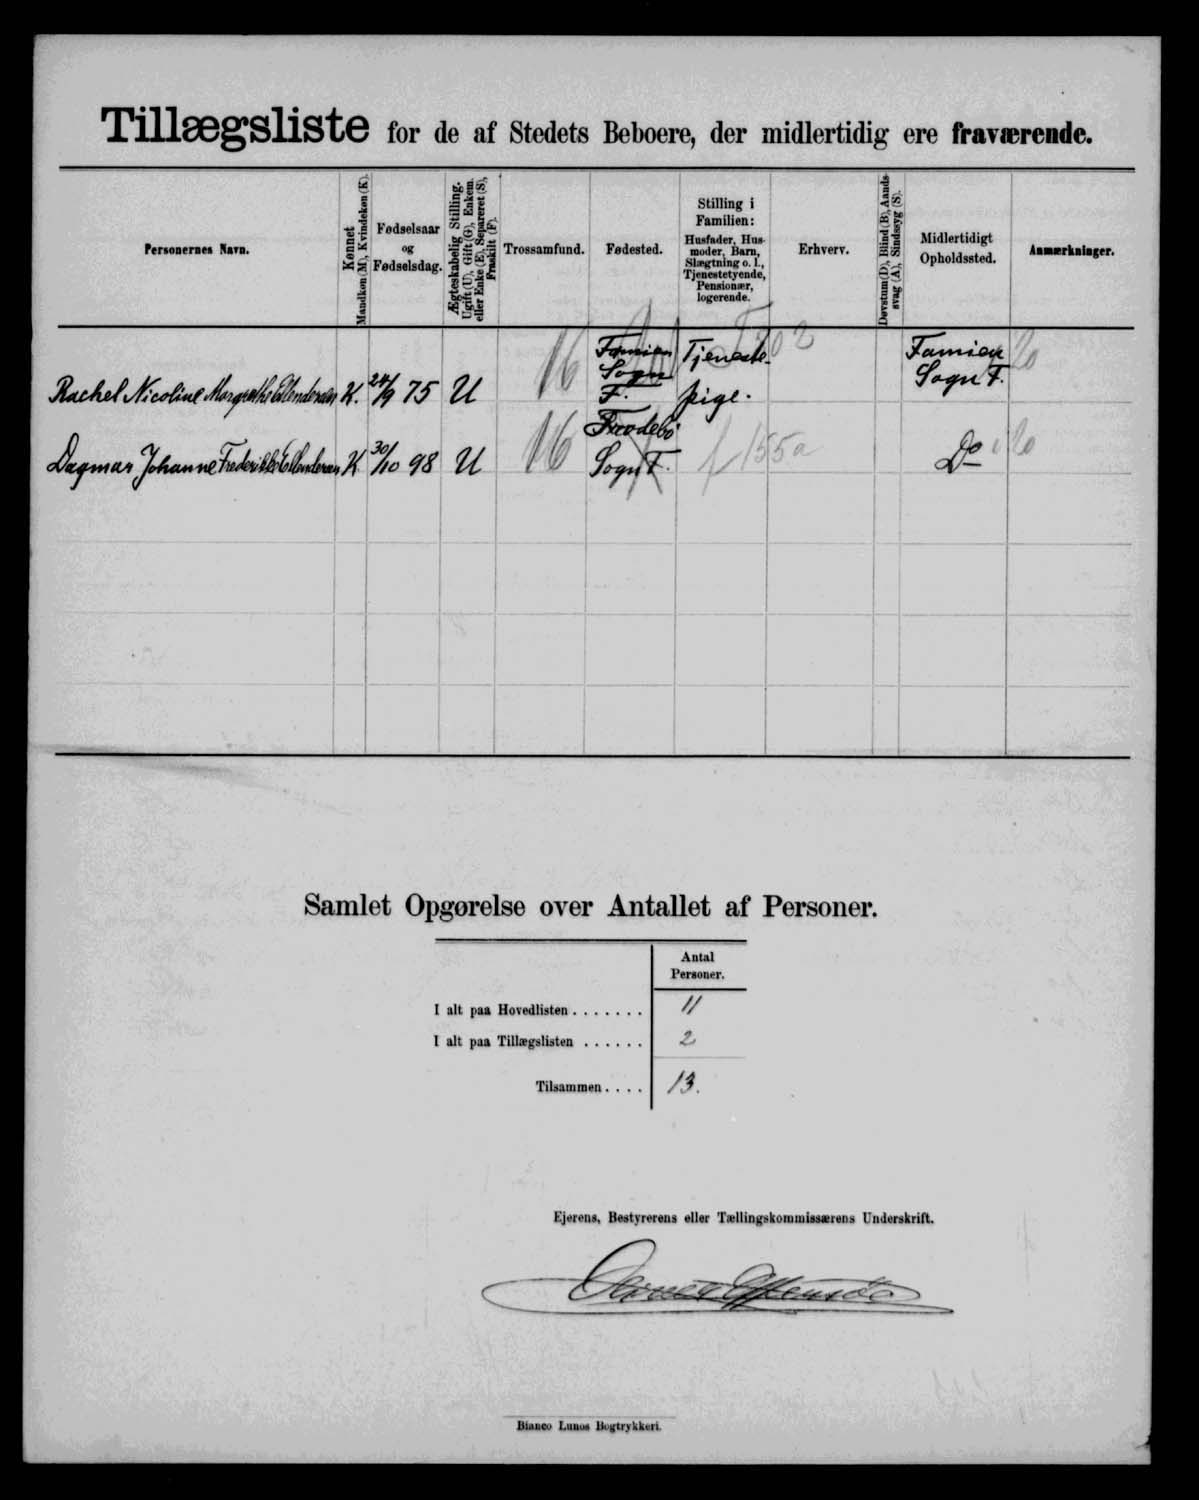 Tillægsliste for de af Stedets Beboere, der midlertidig ere fraværende.
Personernes Navn.
Kønnet
Mandkøn (M), Kvindekøn (K).
Fødselsaar
og
Fødselsdag.
Ægteskabelig Stilling.
Ugift (U), Gift (G), Enkem.
eller Enke (E), Separeret (S),
Fraskilt (F).
Trossamfund.
Fødested.
Stilling i
Familien:
Husfader, Hus-
moder, Barn,
Slægtning o. l.,
Tjenestetyende,
Pensionær,
logerende.
Erhverv.
Døvstum (D), Blind (B), Aands-
svag (A), Sindssyg (S).
Midlertidigt
Opholdssted.
Anmærkninger.
Rachel Nicoline Margrethe Ellendersen K. 24/9 75 U 16 Famien Sogn F. Tjeneste-pige. Famien Sogn F. 20
Dagmar Johanne Frederikke Ellendersen K 30/10 98 U 16 Frodebø Sogn F. f 155a Do 20
Samlet Opgørelse over Antallet af Personer.
Antal
Personer.
I alt paa Hovedlisten ....... 11
I alt paa Tillægslisten ...... 2
Tilsammen .... 13.
Ejerens, Bestyrerens eller Tællingskommissærens Underskrift.
Bianco Lunos Bogtrykkeri.